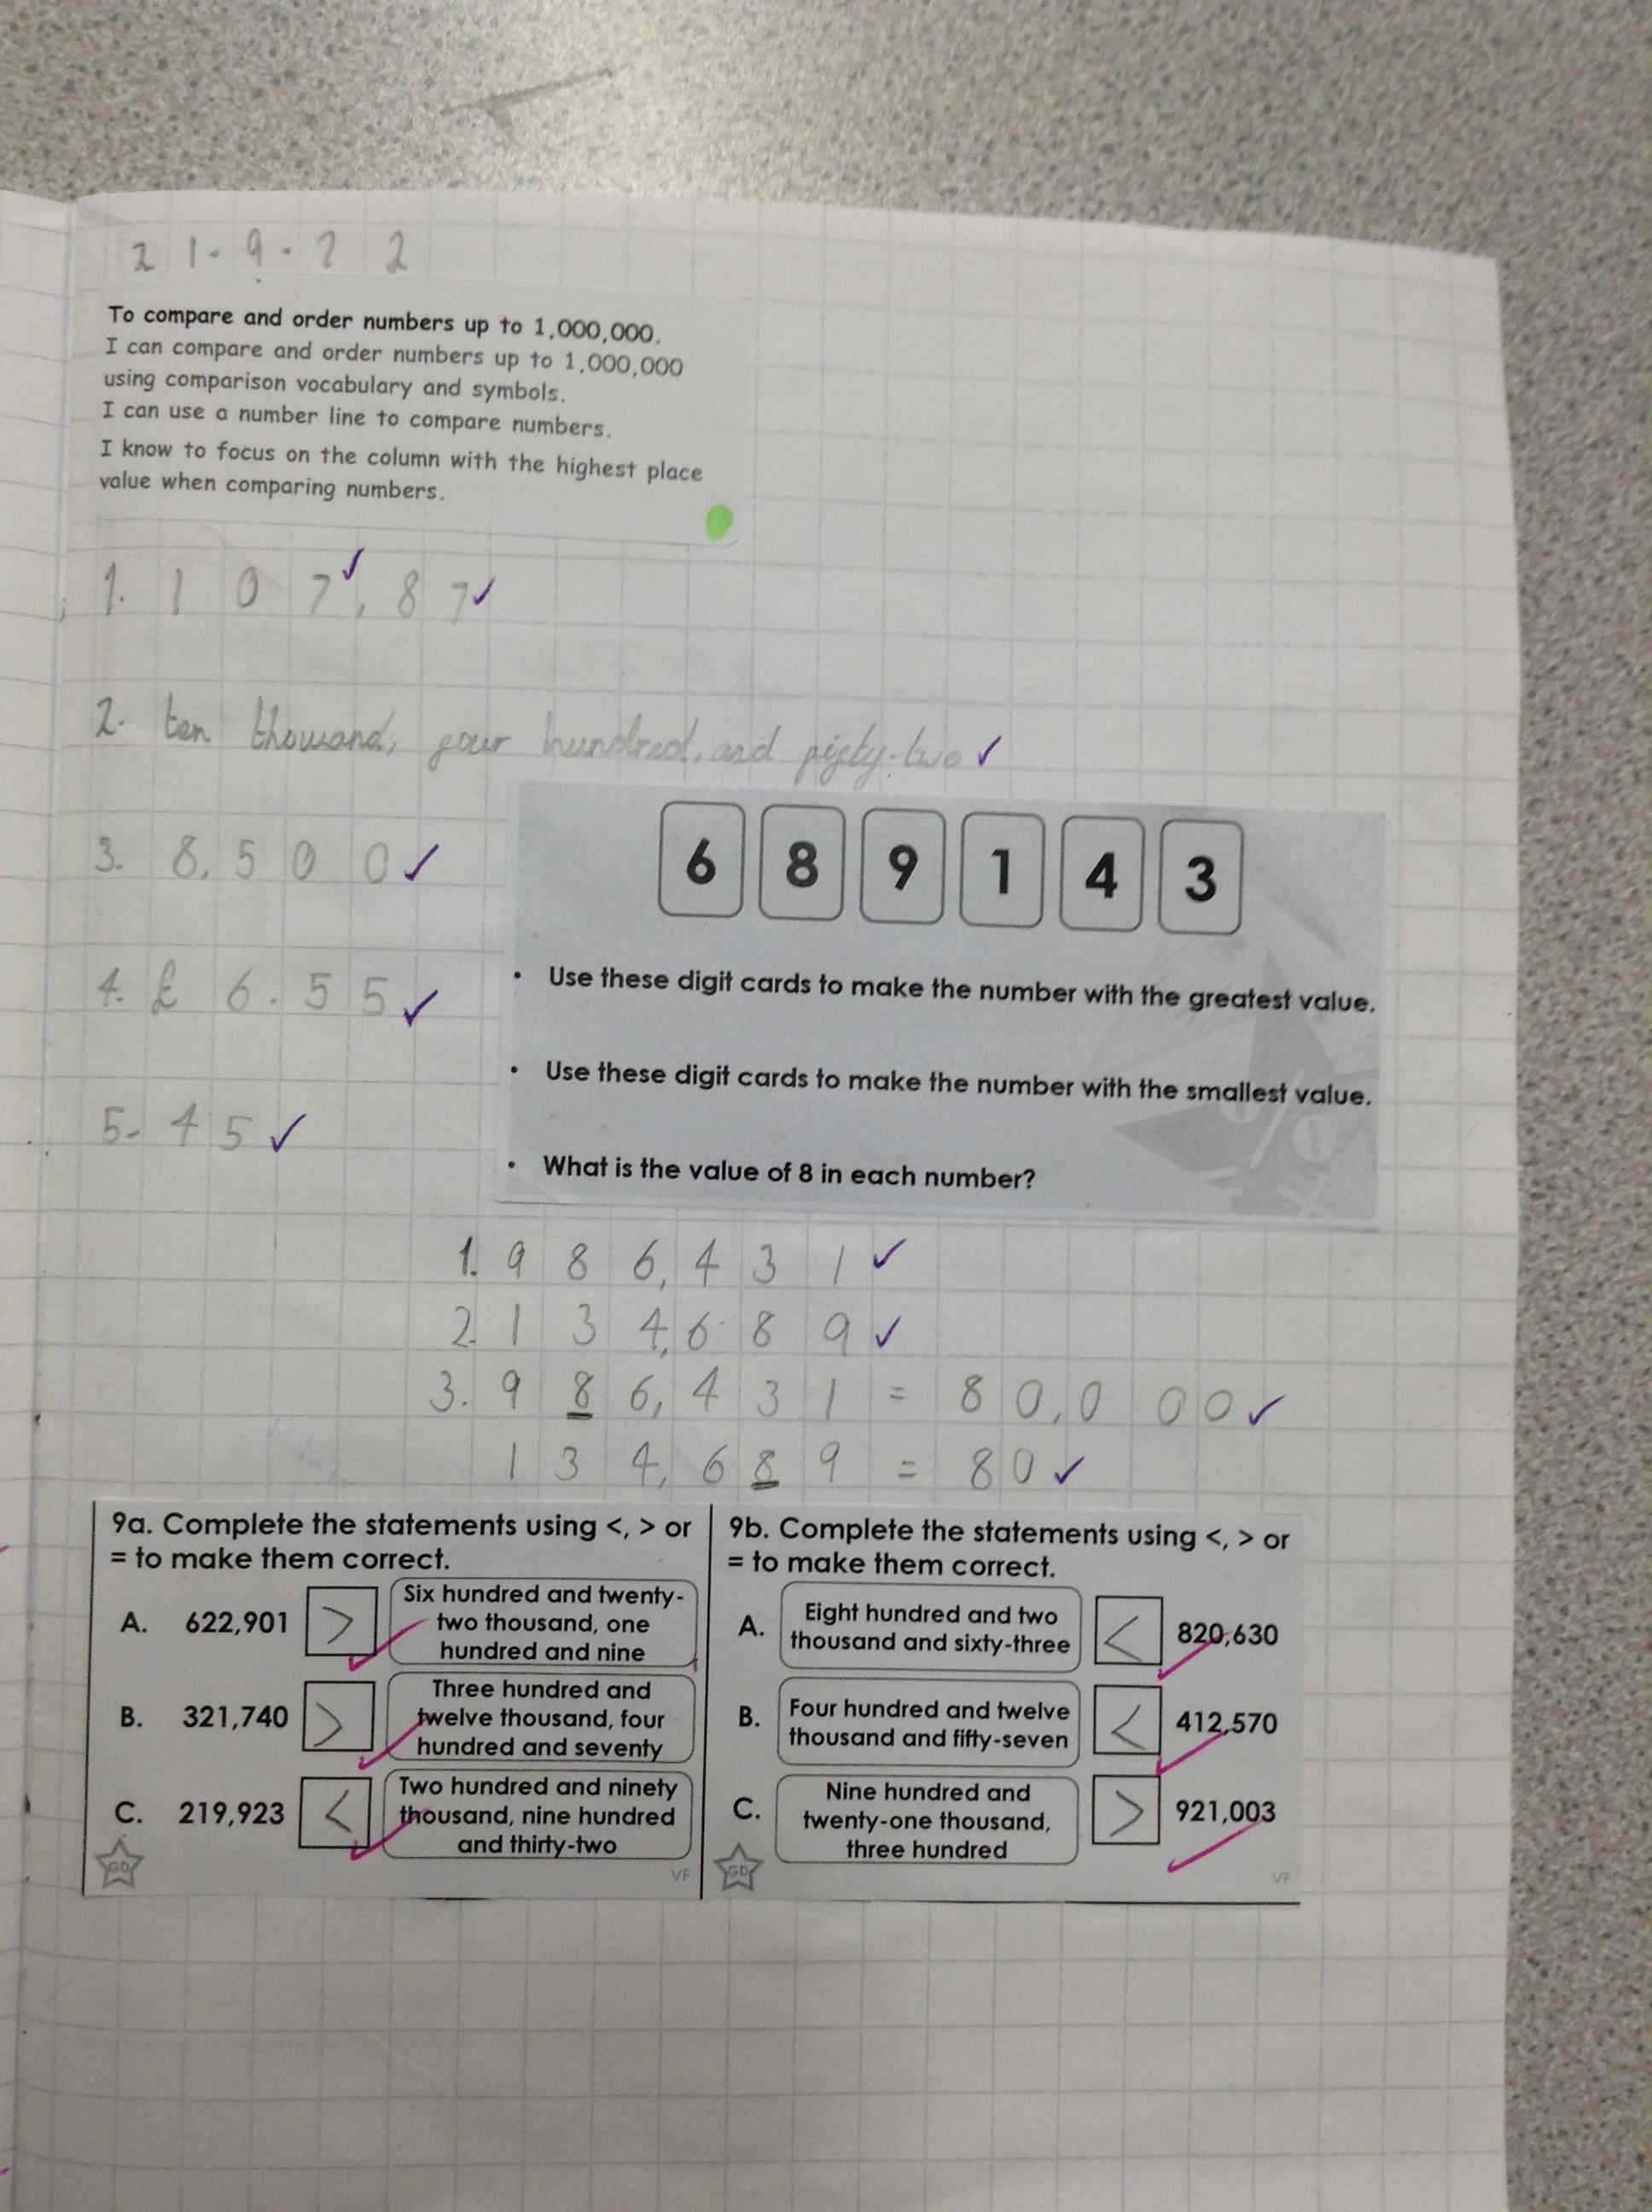 21.9.22
To compare and order numbers up to 1,000,000.
I can compare and order numbers up to 1,000,000
using comparison vocabulary and symbols.
I can use a number line to compare numbers.
I know to focus on the column with the highest place
value when comparing numbers.
1. 107,87
2. ten thousand, four hundred, and fifty-two
3. 8,500
4. £6.55
5. 45
6 8 9 1 4 3
• Use these digit cards to make the number with the greatest value.
• Use these digit cards to make the number with the smallest value.
• What is the value of 8 in each number?
1. 986,431
2. 134,689
3. 986,431 = 80,000
134,689 = 80
9a. Complete the statements using <, > or
= to make them correct.
A. 622,901 > Six hundred and twenty-
two thousand, one
hundred and nine
B. 321,740 > Three hundred and
twelve thousand, four
hundred and seventy
C. 219,923 < Two hundred and ninety
thousand, nine hundred
and thirty-two
GD
VF
9b. Complete the statements using <, > or
= to make them correct.
A. Eight hundred and two
thousand and sixty-three < 820,630
B. Four hundred and twelve
thousand and fifty-seven < 412,570
C. Nine hundred and
twenty-one thousand,
three hundred > 921,003
GD
VF